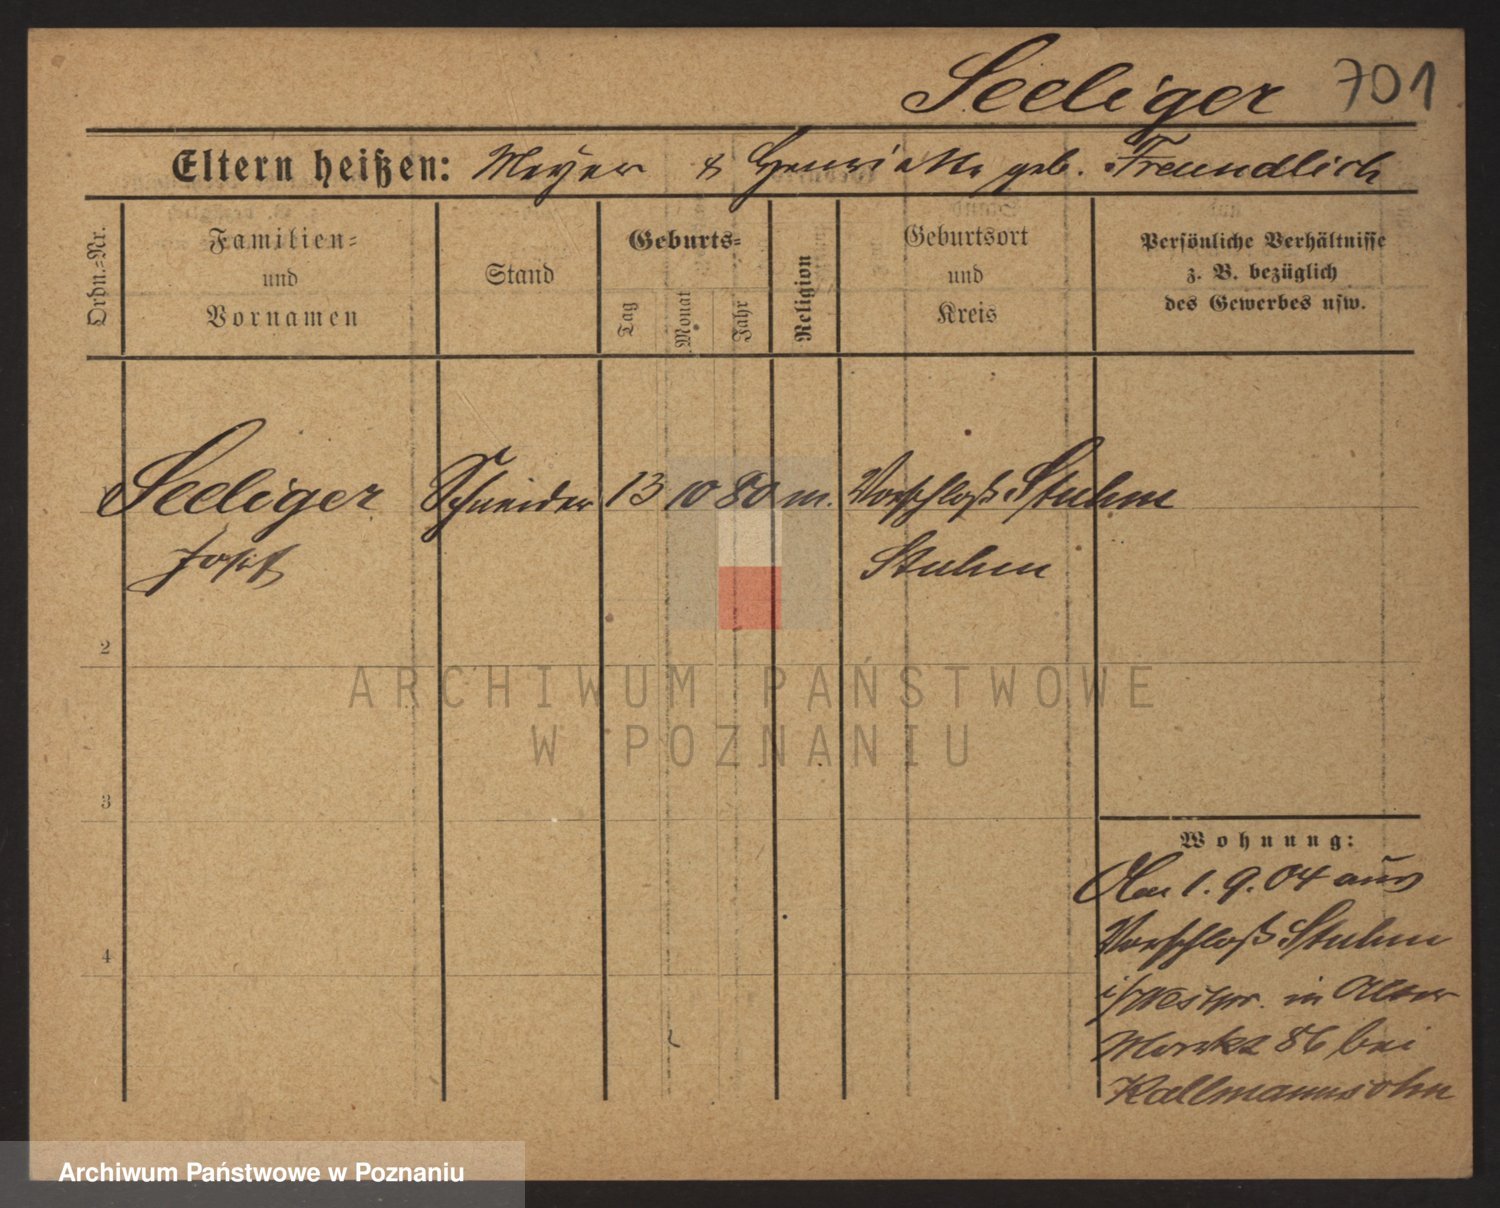 Seeliger 701
Eltern heißen: Meyer & Henriette geb. Freundlich
Ordn.-Nr.
Familien-
und
Vornamen
Stand
Geburts-
Tag
Monat
Jahr
Religion
Geburtsort
und
Kreis
Persönliche Verhältnisse
z. B. bezüglich
des Gewerbes usw.
Seeliger Schneider 13 10 80 m. Vorschloß Stuhm
Josef Stuhm
2
3
4
Wohnung:
Am 1.9.04 aus
Vorschloß Stuhm
i/Westpr. in Alter
Markt 86 bei
Kallmannsohn
ARCHIWUM PAŃSTWOWE
W POZNANIU
Archiwum Państwowe w Poznaniu